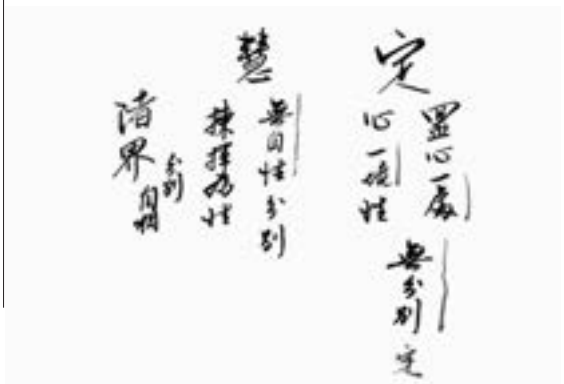 定
置心一處
心一境性
無分別定
慧
無自性分別
揀擇為性
諸界
分別
自相